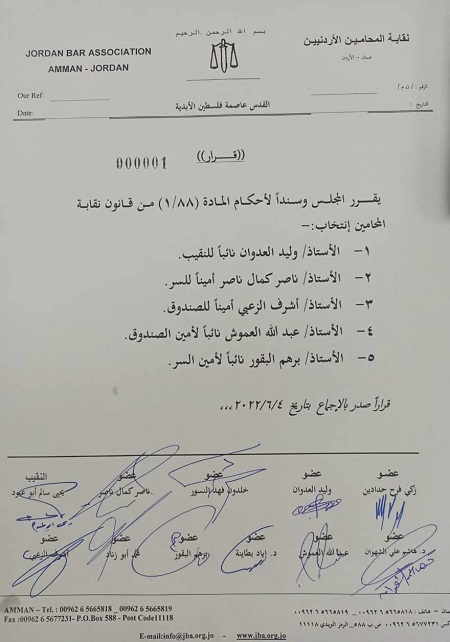 بسم الله الرحمن الرحيم
JORDAN BAR ASSOCIATION
AMMAN - JORDAN
نقابة المحامين الأردنيين
عمان - الأردن
Our Ref:
Date:
الرقم : / ن.م /
التاريخ :
القدس عاصمة فلسطين الأبدية
((قـــرار))
000001
يقرر المجلس وسنداً لأحكام المادة (١/٨٨) من قانون نقابة
المحامين إنتخاب:-
١- الأستاذ/ وليد العدوان نائباً للنقيب.
٢- الأستاذ/ ناصر كمال ناصر أميناً للسر.
٣- الأستاذ/ أشرف الزعبي أميناً للصندوق.
٤- الأستاذ/ عبد الله العموش نائباً لأمين الصندوق.
٥- الأستاذ/ برهم البقور نائباً لأمين السر.
قراراً صدر بالإجماع بتاريخ ٢٠٢٢/٦/٤ ،،،
عضو عضو عضو عضو النقيب
زكي فرح حدادين وليد العدوان خلدون فهد النسور ناصر كمال ناصر يحيى سالم أبو عبود
عضو عضو عضو عضو عضو عضو
د. هاشم علي الشهوان عبد الله العموش د. إياد بطاينة برهم البقور محمد أبو زناد أشرف الزعبي
AMMAN – Tel. : 00962 6 5665818 _ 00962 6 5665819
Fax :00962 6 5677231- P.O.Box 588 - Post Code11118
E-mail:info@jba.org.jo - www.jba.org.jo